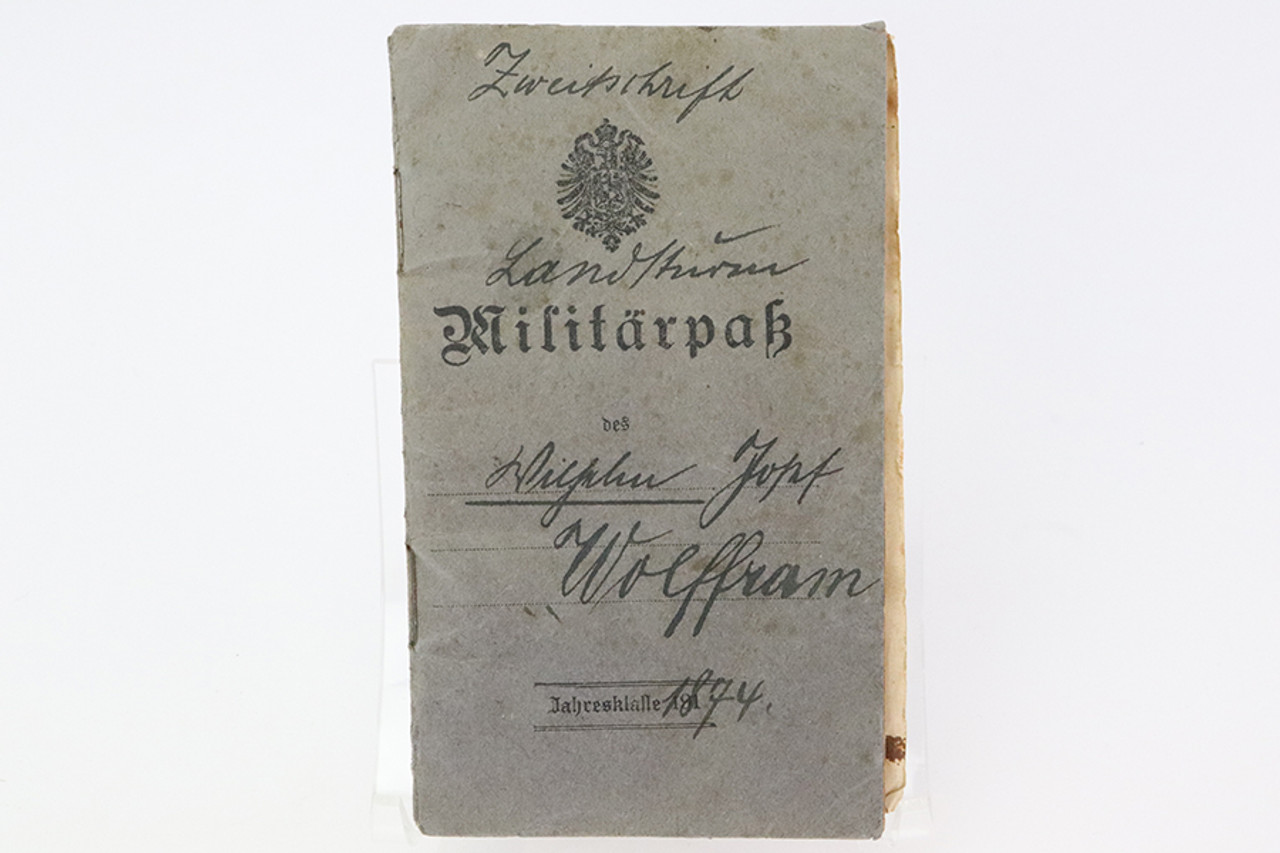 Zweitschrift
Landsturm
Militärpaß
des
Wilhelm Josef
Wolffram
Jahresklasse 1874.